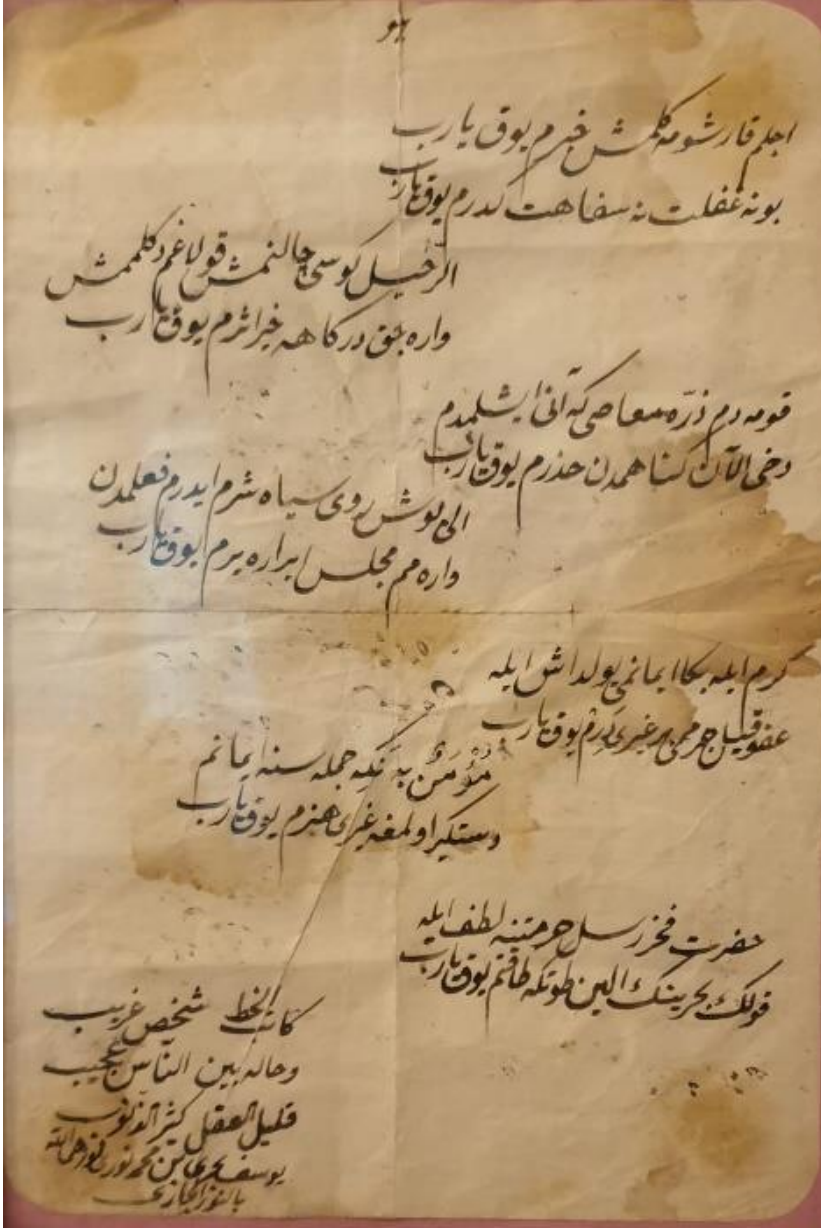 هو
اجلم قارشومه كلمش خبرم يوق يارب
بو نه غفلت نه سفاهت كدرم يوق يارب
الرحيل كوسى چالنمش قولاغم دكلممش
واره جق دركاهه خير اثرم يوق يارب
قومه دم ذرّه معاصى كه آنى ايشلمدم
دخى الآن كناهمدن حذرم يوق يارب
الى بوش روى سياه شرم ايدرم فعلمدن
واره مم مجلس ابراره يرم يوق يارب
كرم ايله بكا ايمانمى يولداش ايله
عفو قيل جرممى بر غيرى درم يوق يارب
مؤمن به نكه جمله سنه ايمانم
دستكير اولمغه غيرى هنرم يوق يارب
حضرت فخر رسل حرمتنه لطف ايله
قولك بحرينك الين طوتكه طاقتم يوق يارب
كاتب الخط شخص غريب
وحاله بين النّاس عجيب
قليل العقل كثر الذنوب
يوسف بحرى بن محمد نورى